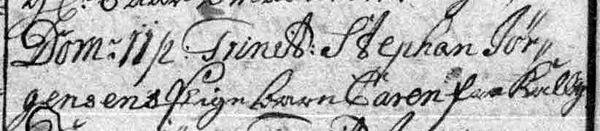 Dom: 11 p. Trinit: Stephan Jør„
gensens Pige barn Caren fra Kalbÿ